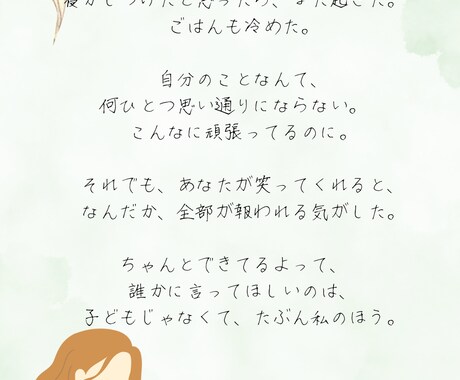 寝かしつけたと思ったら、また起きた。
ごはんも冷めた。
自分のことなんて、
何ひとつ思い通りにならない。
こんなに頑張ってるのに。
それでも、あなたが笑ってくれると、
なんだか、全部が報われる気がした。
ちゃんとできてるよって、
誰かに言ってほしいのは、
子どもじゃなくて、たぶん私のほう。